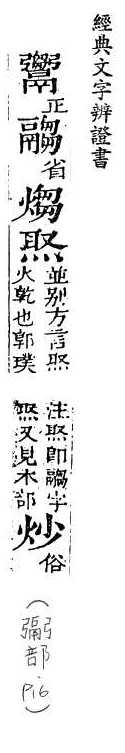 經典文字辨證書
𩱦正䰞省煼焣並別方言焣
火乾也郭璞
注焣即䰞字
焣又見木部炒俗
(弼部 P16)